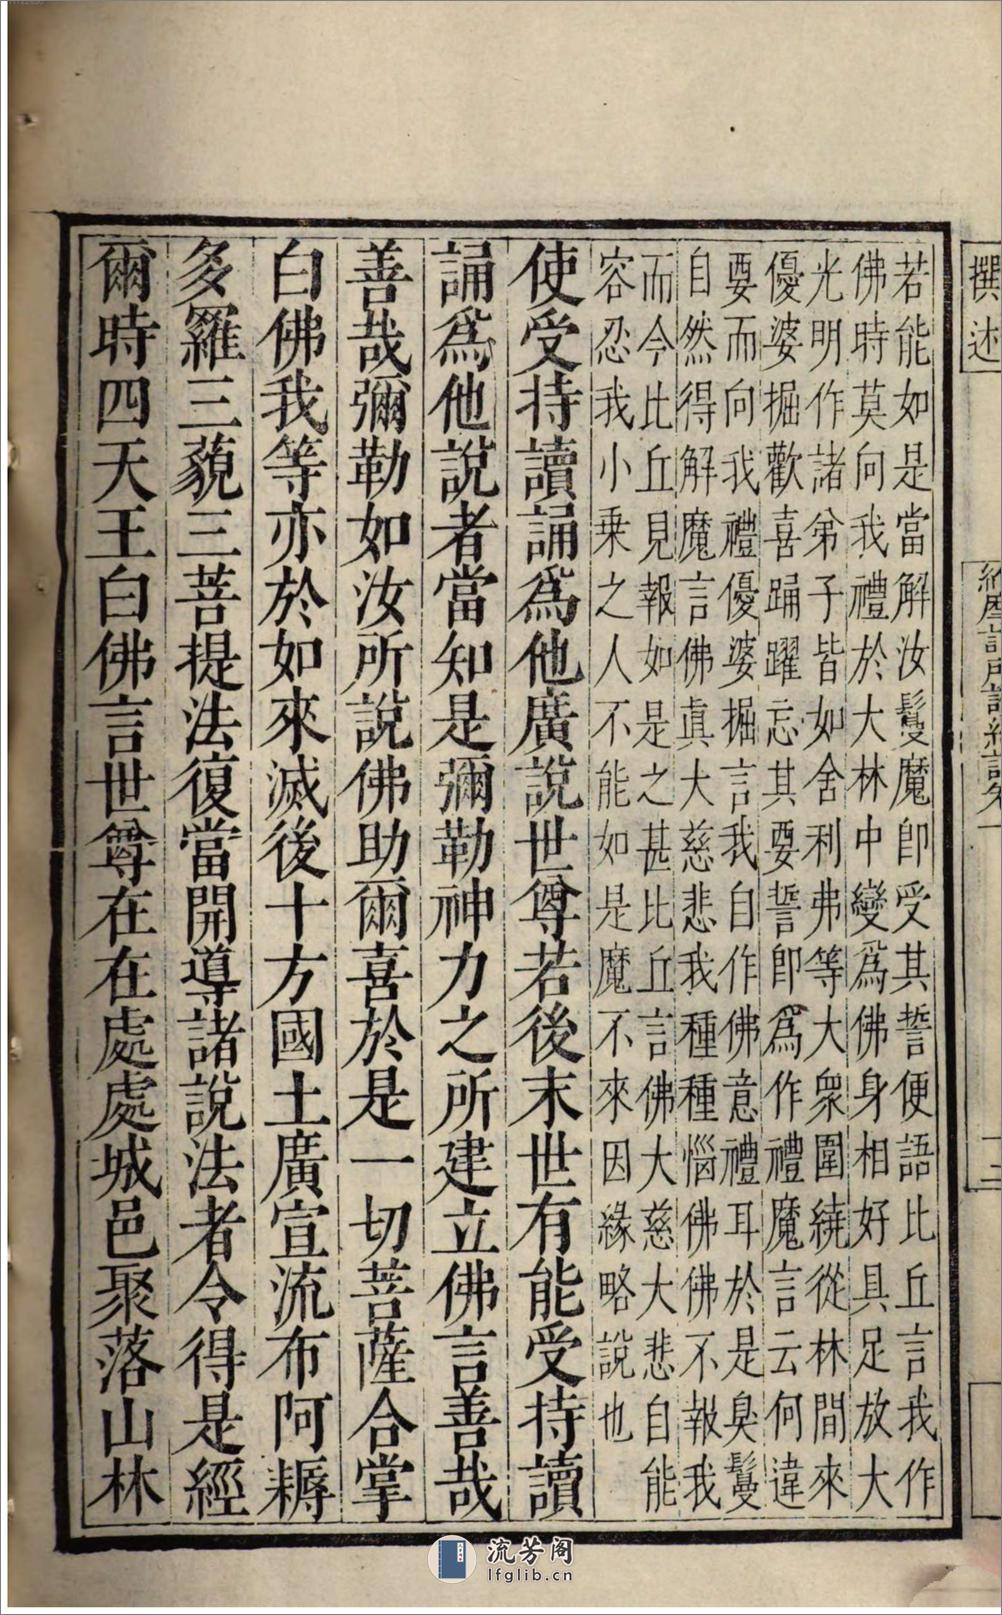 撰述
若能如是當解汝鬘魔即受其誓便語比丘言我作
佛時莫向我禮於大林中變爲佛身相好具足放大
光明作諸弟子皆如舍利弗等大衆圍繞從林間來
優婆掘歡喜踊躍忘其要誓即爲作禮魔言云何違
要而向我禮優婆掘言我自作佛意禮耳於是臭鬘
自然得解魔言佛眞大慈悲我種種惱佛佛不報我
而今比丘見報如是之甚比丘言佛大慈大悲自能
容忍我小乘之人不能如是魔不來因緣略說也
使受持讀誦爲他廣說世尊若後末世有能受持讀
誦爲他說者當知是彌勒神力之所建立佛言善哉
善哉彌勒如汝所說佛助爾喜於是一切菩薩合掌
白佛我等亦於如來滅後十方國土廣宣流布阿耨
多羅三藐三菩提法復當開導諸說法者令得是經
爾時四天王白佛言世尊在在處處城邑聚落山林
流芳阁
lfglib.cn